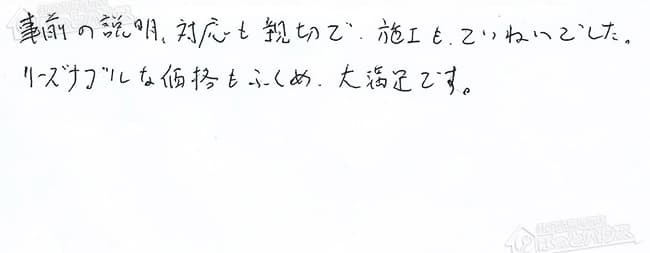 事前の説明、対応も親切で、施工も、ていねいでした。
リーズナブルな価格もふくめ、大満足です。